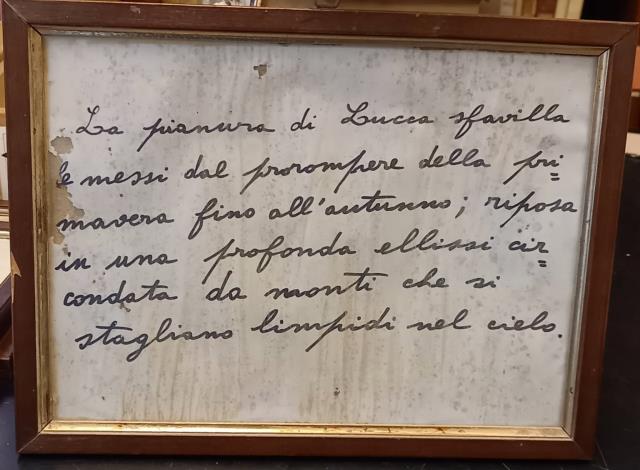 La pianura di Lucca sfavilla
le messi dal prorompere della pri=
mavera fino all'autunno; riposa
in una profonda ellissi cir=
condata da monti che si
stagliano limpidi nel cielo.